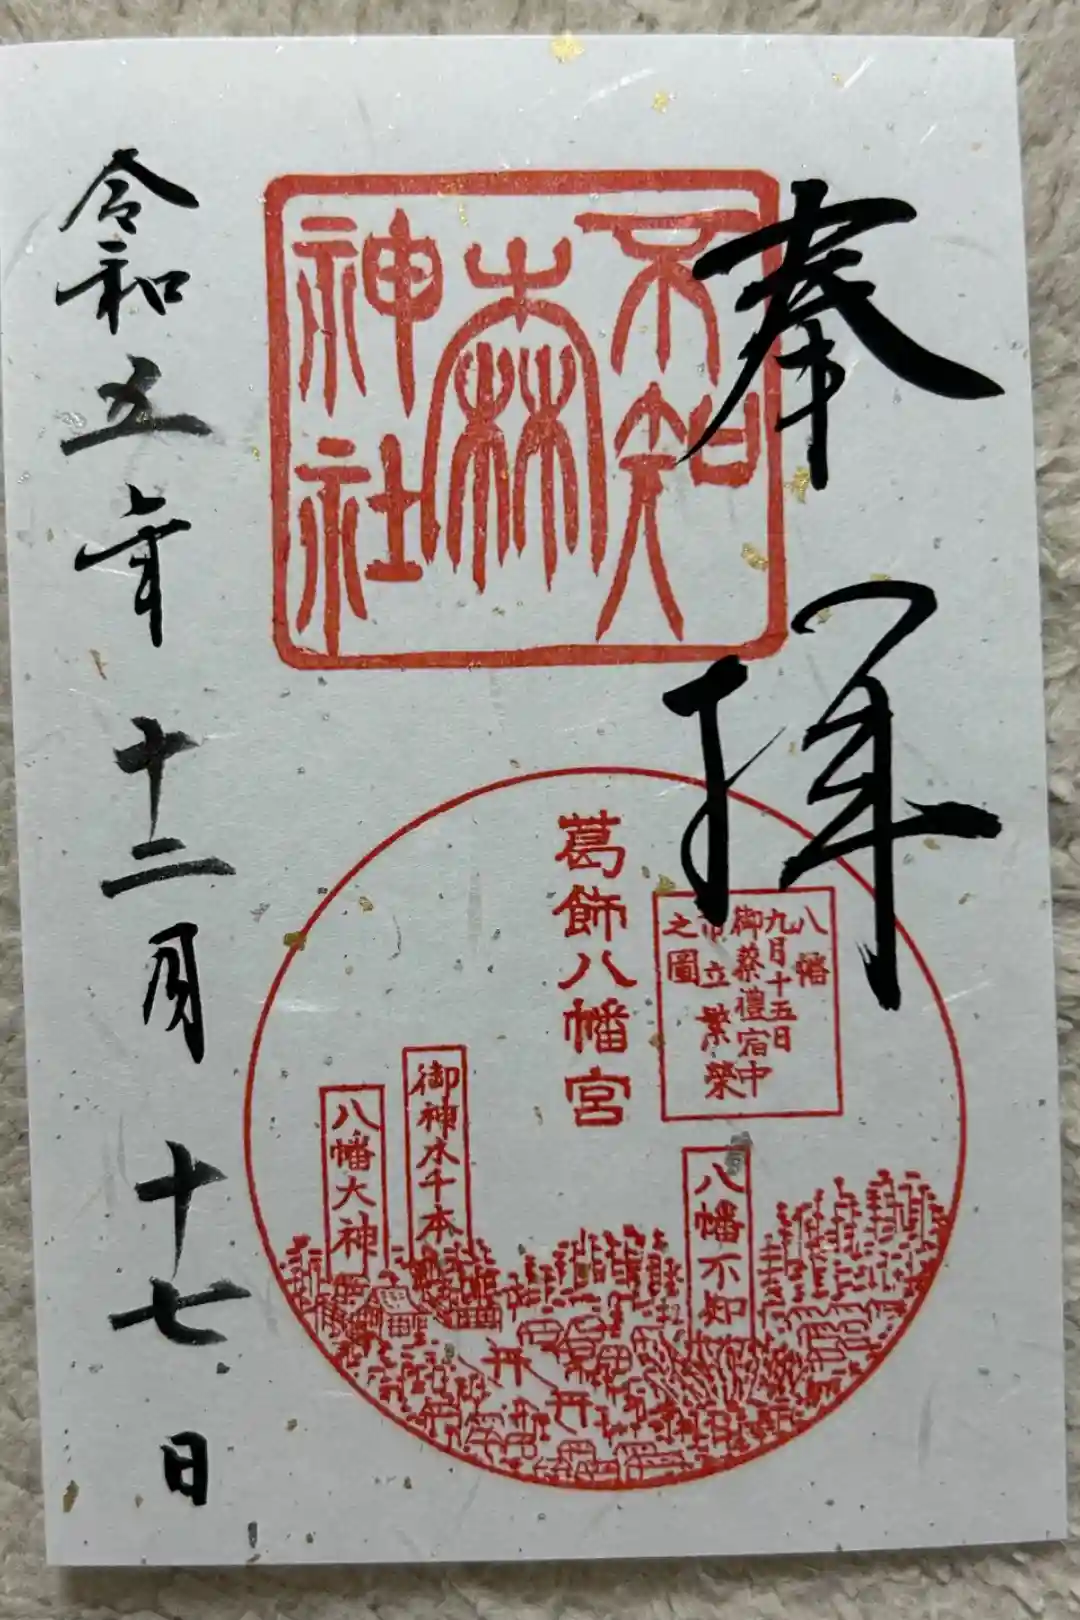 奉拝
不知
森
神社
葛飾八幡宮
八幡
九月十五日
御祭禮宿中
市立繁榮
之圖
八幡不知
御神水千本
八幡大神
令和五年十二月十七日